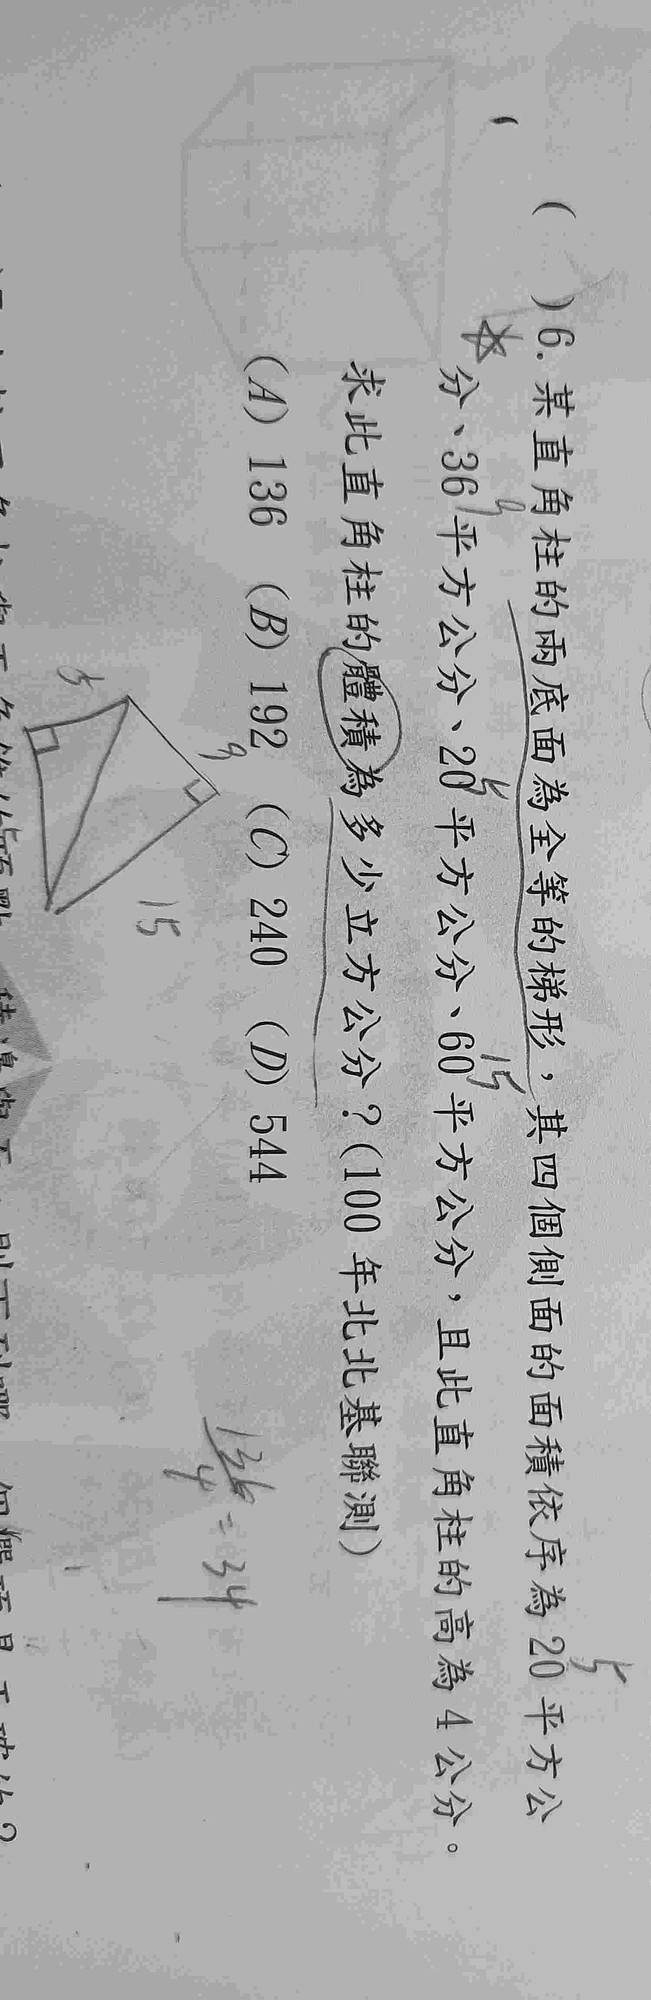 ( )6. 某直角柱的兩底面為全等的梯形，其四個側面的面積依序為20平方公
分、36平方公分、20平方公分、60平方公分，且此直角柱的高為4公分。
求此直角柱的體積為多少立方公分？(100年北北基聯測)
(A) 136 (B) 192 (C) 240 (D) 544
5
9
5
15
5
9
15
136/4 = 34